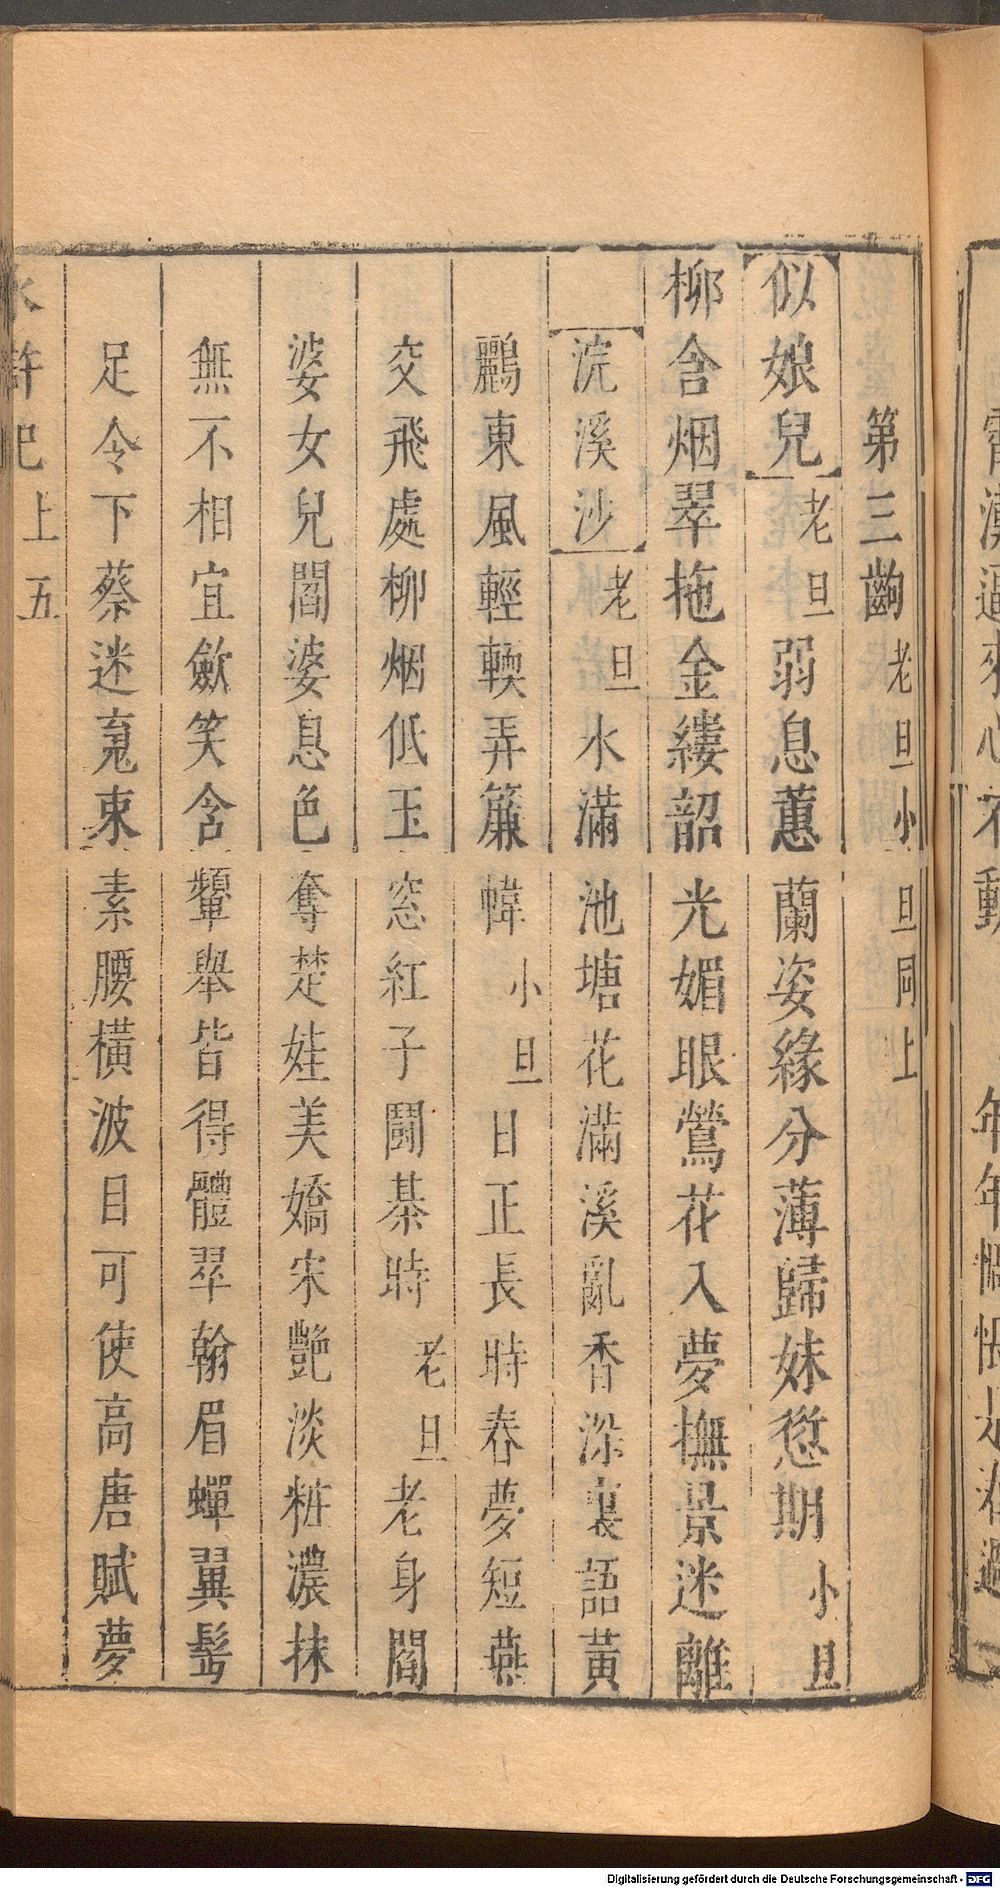 第三齣 老旦小旦同上
似娘兒 老旦 弱息蕙蘭姿緣分薄歸妹愆期 小旦
柳含烟翠拖金縷韶光媚眼鶯花入夢撫景迷離
浣溪沙 老旦 水滿池塘花滿溪亂香深裏語黃
鸝東風輕輭弄簾幃 小旦 日正長時春夢短燕
交飛處柳烟低玉窓紅子鬪棊時 老旦 老身閻
婆女兒閻婆息色奪楚娃美嬌宋艷淡粧濃抹
無不相宜歛笑含顰舉皆得體翠翰眉蟬翼髩
足令下蔡迷䰟束素腰橫波目可使高唐賦夢
水滸記 上 五
年年
Digitalisierung gefördert durch die Deutsche Forschungsgemeinschaft - DFG